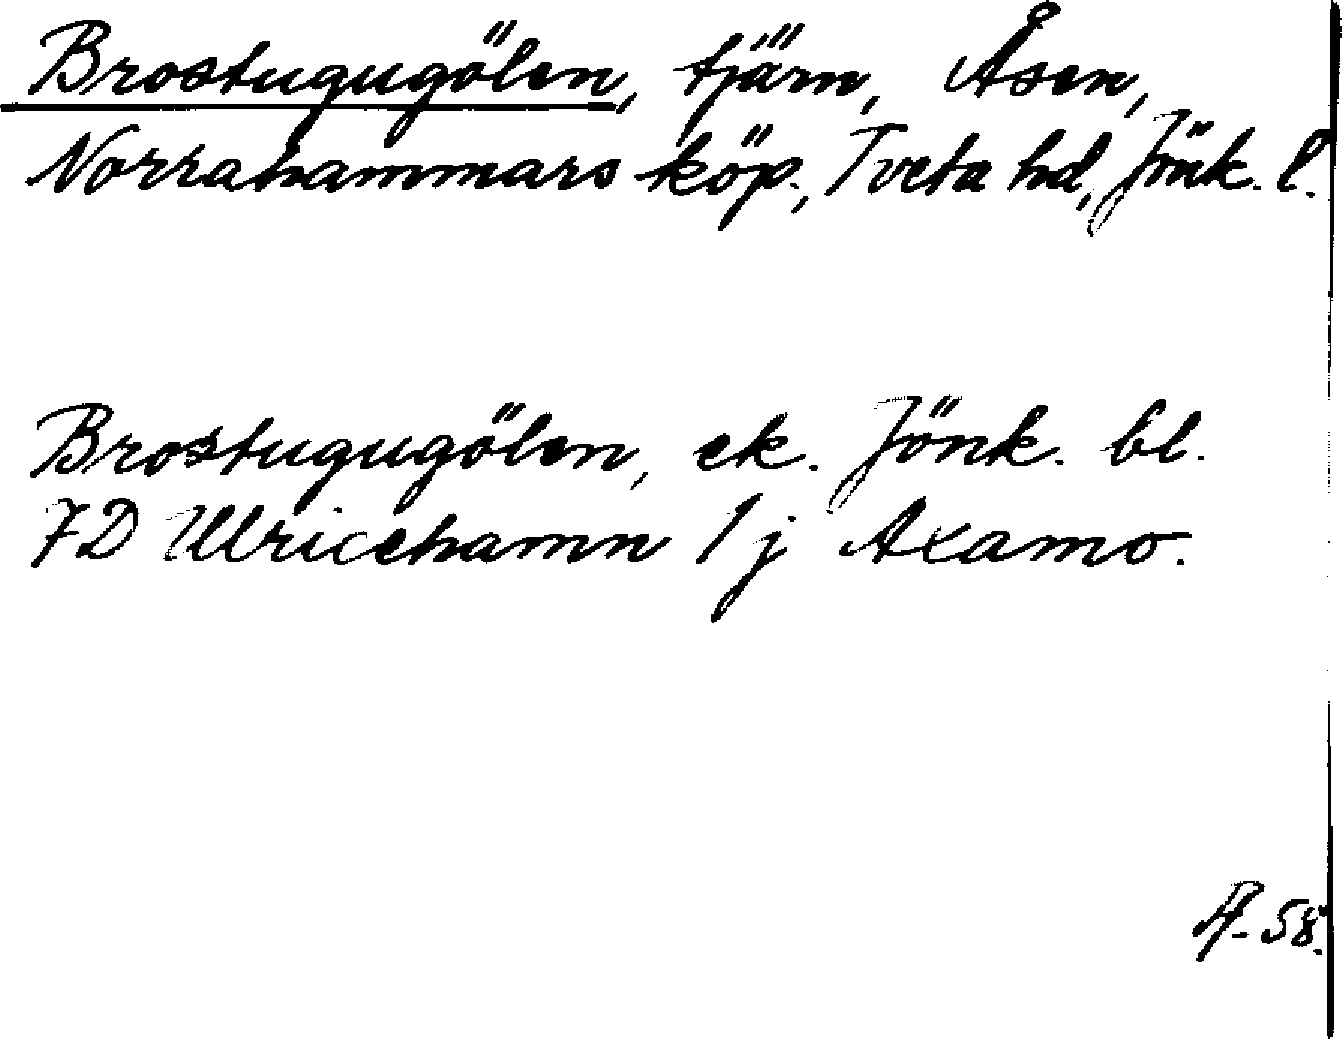 Brostugugölen, tjärn, Åsen,
Norrahammars köp., Tveta hd, Jönk. l.
Brostugugölen, ek. Jönk. bl.
7D Ulricehamn 1j Axamo.
58.